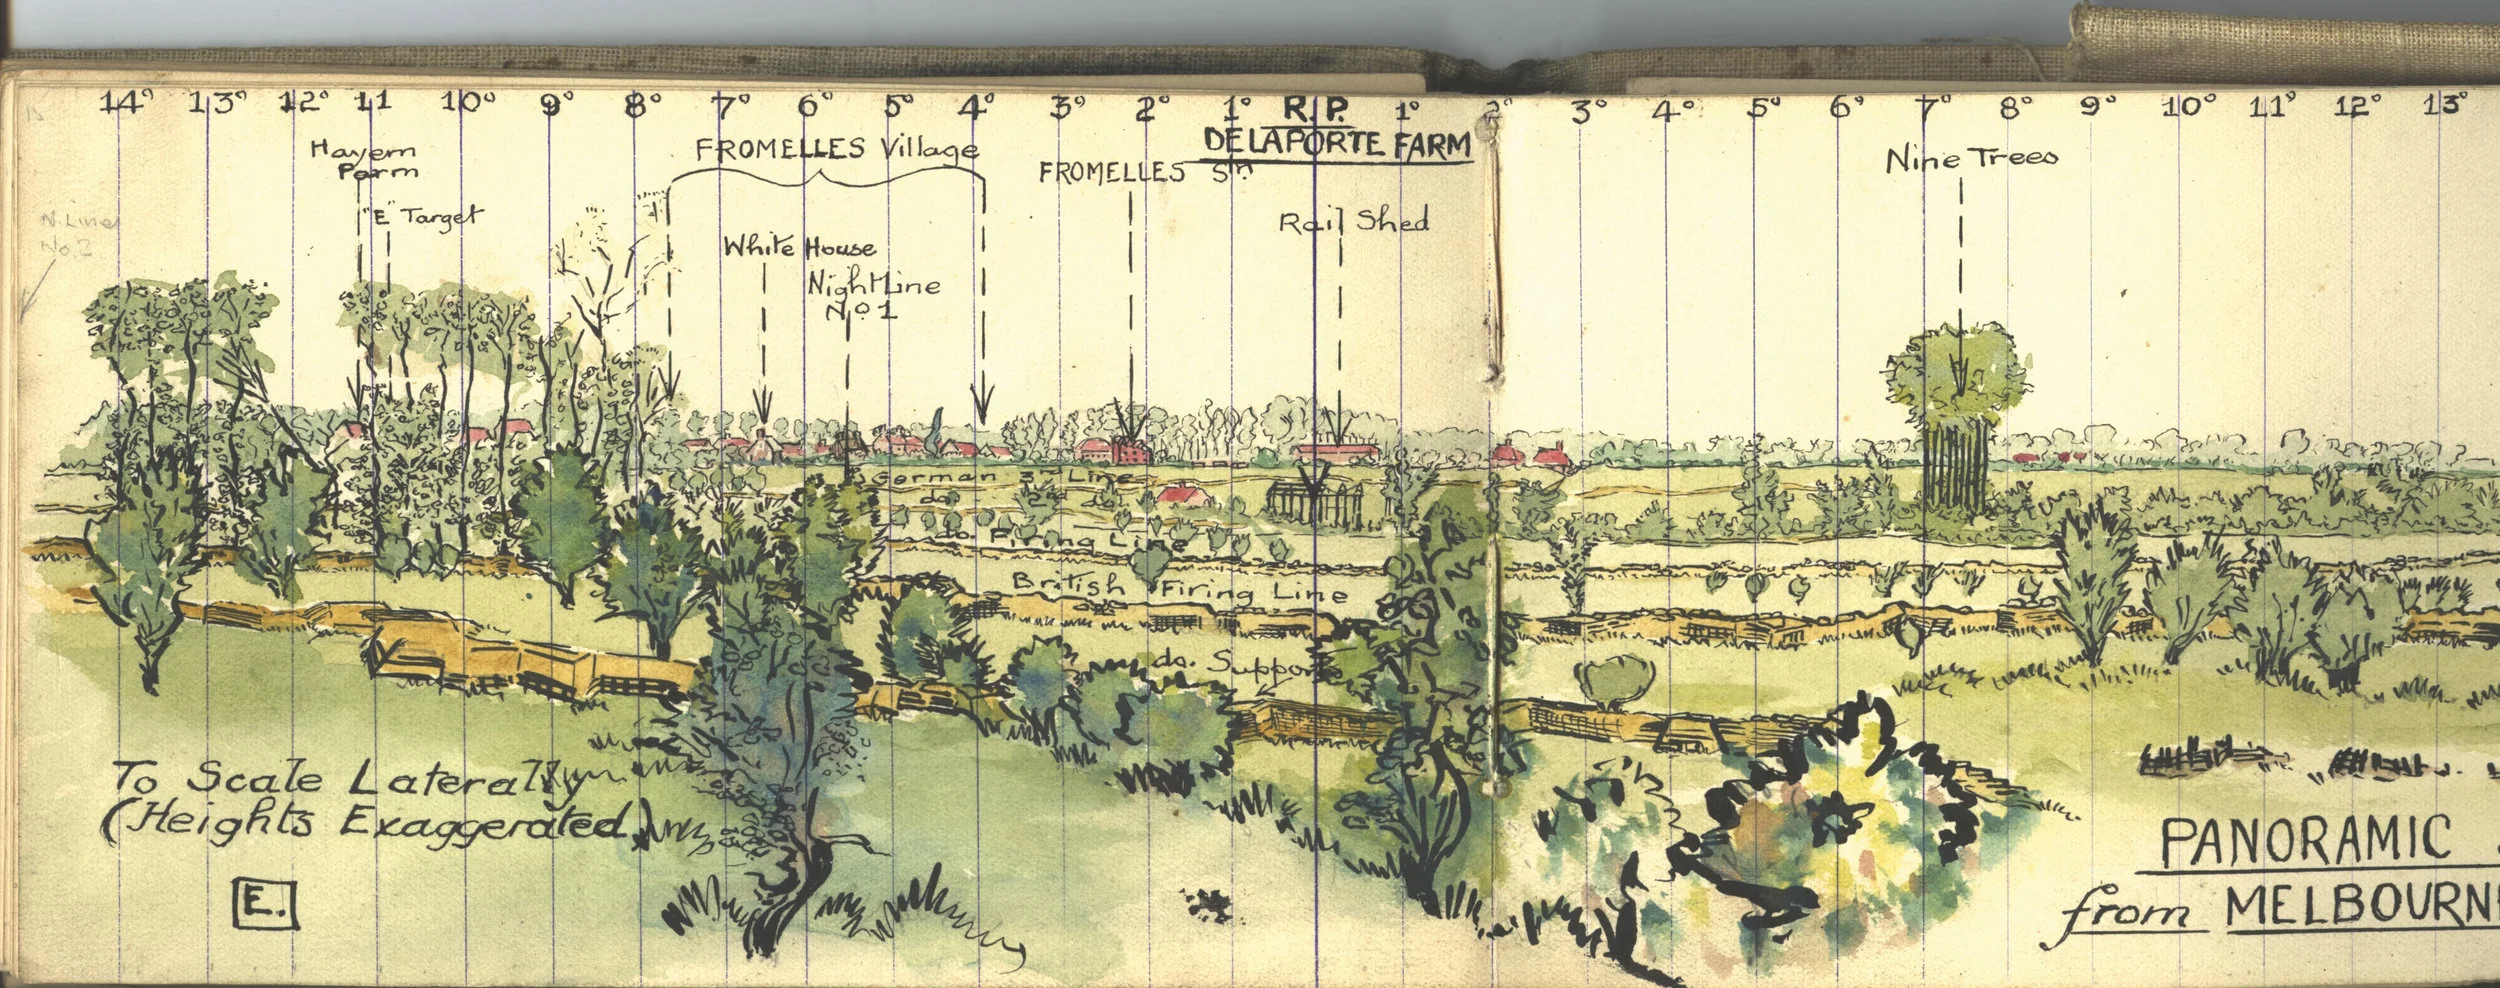 14° 13° 12° 11 10° 9° 8° 7° 6° 5° 4° 3° 2° 1° R.P. 1° 2° 3° 4° 5° 6° 7° 8° 9° 10° 11° 12° 13°
DELAPORTE FARM
Hayem
Farm
FROMELLES Village
FROMELLES Sⁿ
Nine Trees
"E" Target
N. Line
No. 2
Rail Shed
White House
Night Line
No 1
German 3rd Line
do. 2nd do.
do. Firing Line
British Firing Line
do. Supports
To Scale Laterally
(Heights Exaggerated)
E.
PANORAMIC
from MELBOURN